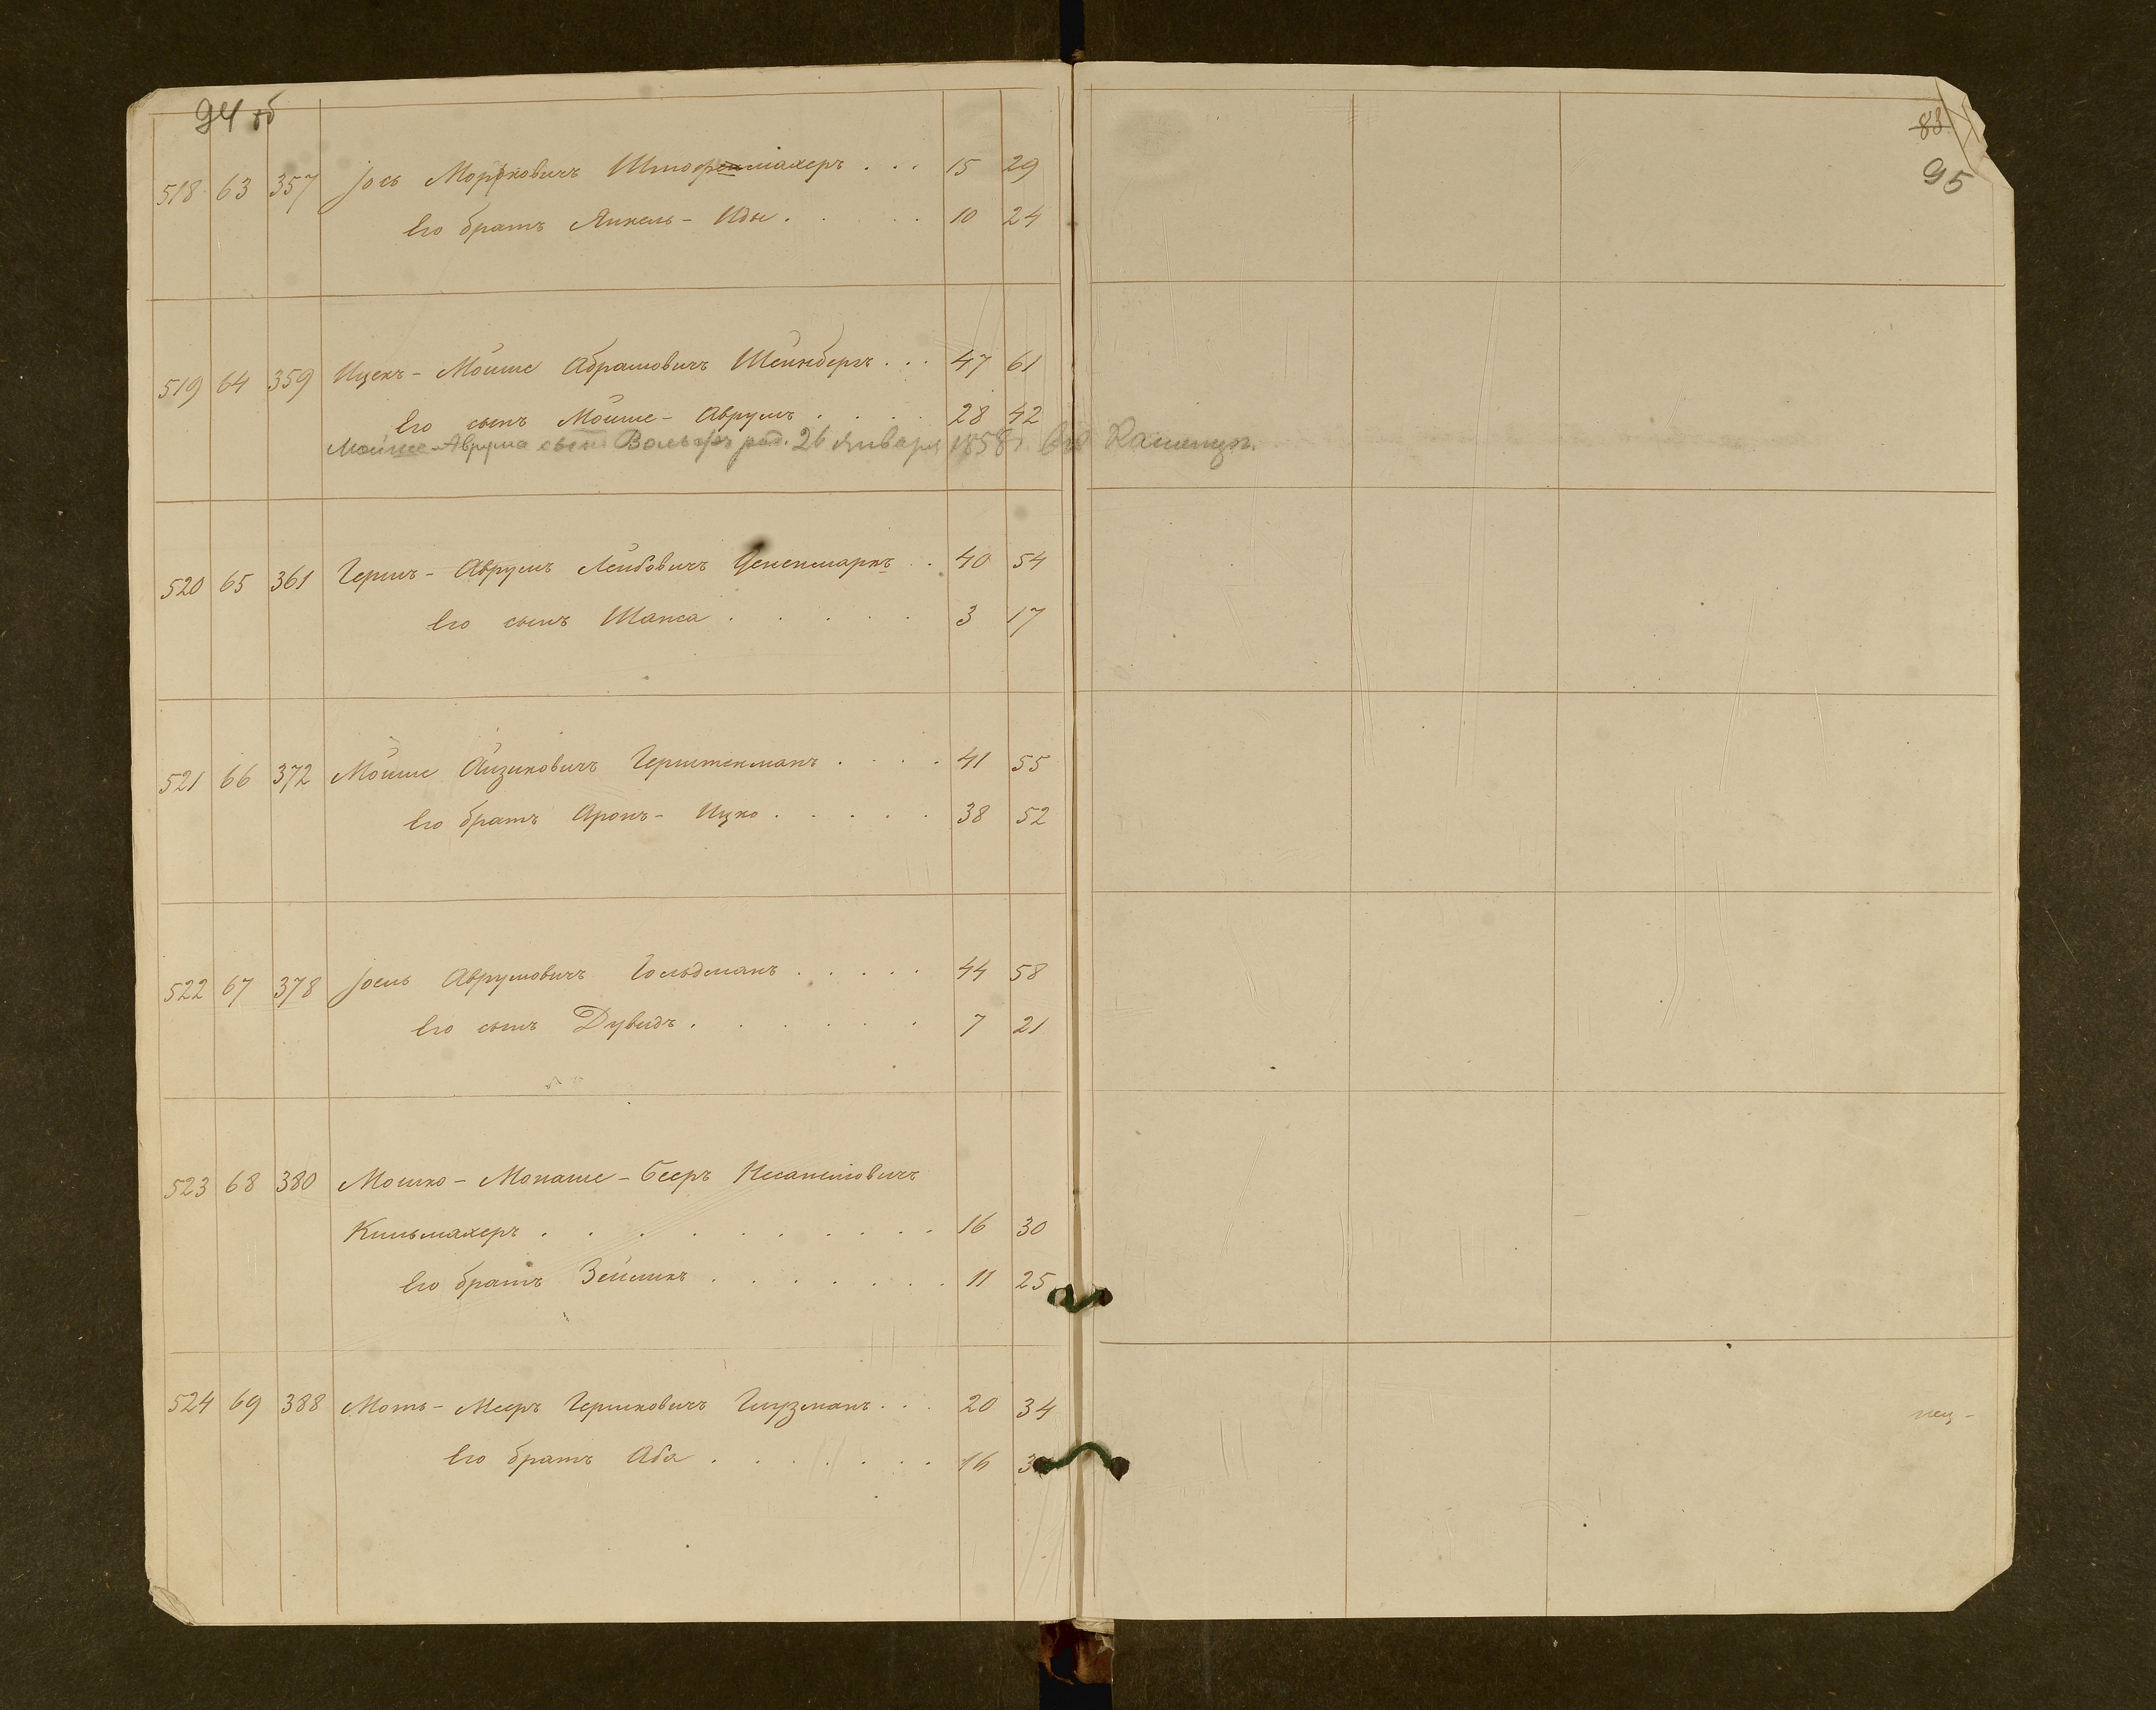 94 об
518 63 357 Іось Моршковичъ Штофенмахеръ . . . 15 29
Его братъ Янкель - Иды . . . . 10 24
519 64 359 Ицекъ - Мойше Абрамовичъ Шейнбергъ . . . 47 61
Его сынъ Мойше - Аврумъ . . . . 28 42
Мойше-Аврума сынъ Вольфъ род. 26 Января 1858 г.
520 65 361 Гершъ - Аврумъ Лейбовичъ Цененмаркъ . . 40 54
Его сынъ Шапса . . . . . 3 17
521 66 372 Мойше Айзиковичъ Герштенманъ . . . . 41 55
Его братъ Аронъ - Ицко . . . . . 38 52
522 67 378 Іосль Аврумовичъ Гольдманъ . . . . . 44 58
Его сынъ Дувидъ . . . . . . 7 21
523 68 380 Мошко - Монаше - Бееръ Несанеловичъ
Кильмахеръ . . . . . . . . . 16 30
Его братъ Зейликъ . . . . . . 11 25
524 69 388 Моть - Мееръ Гершковичъ Глузманъ . . . 20 34
Его братъ Аба . . . . . . . 16
83
95